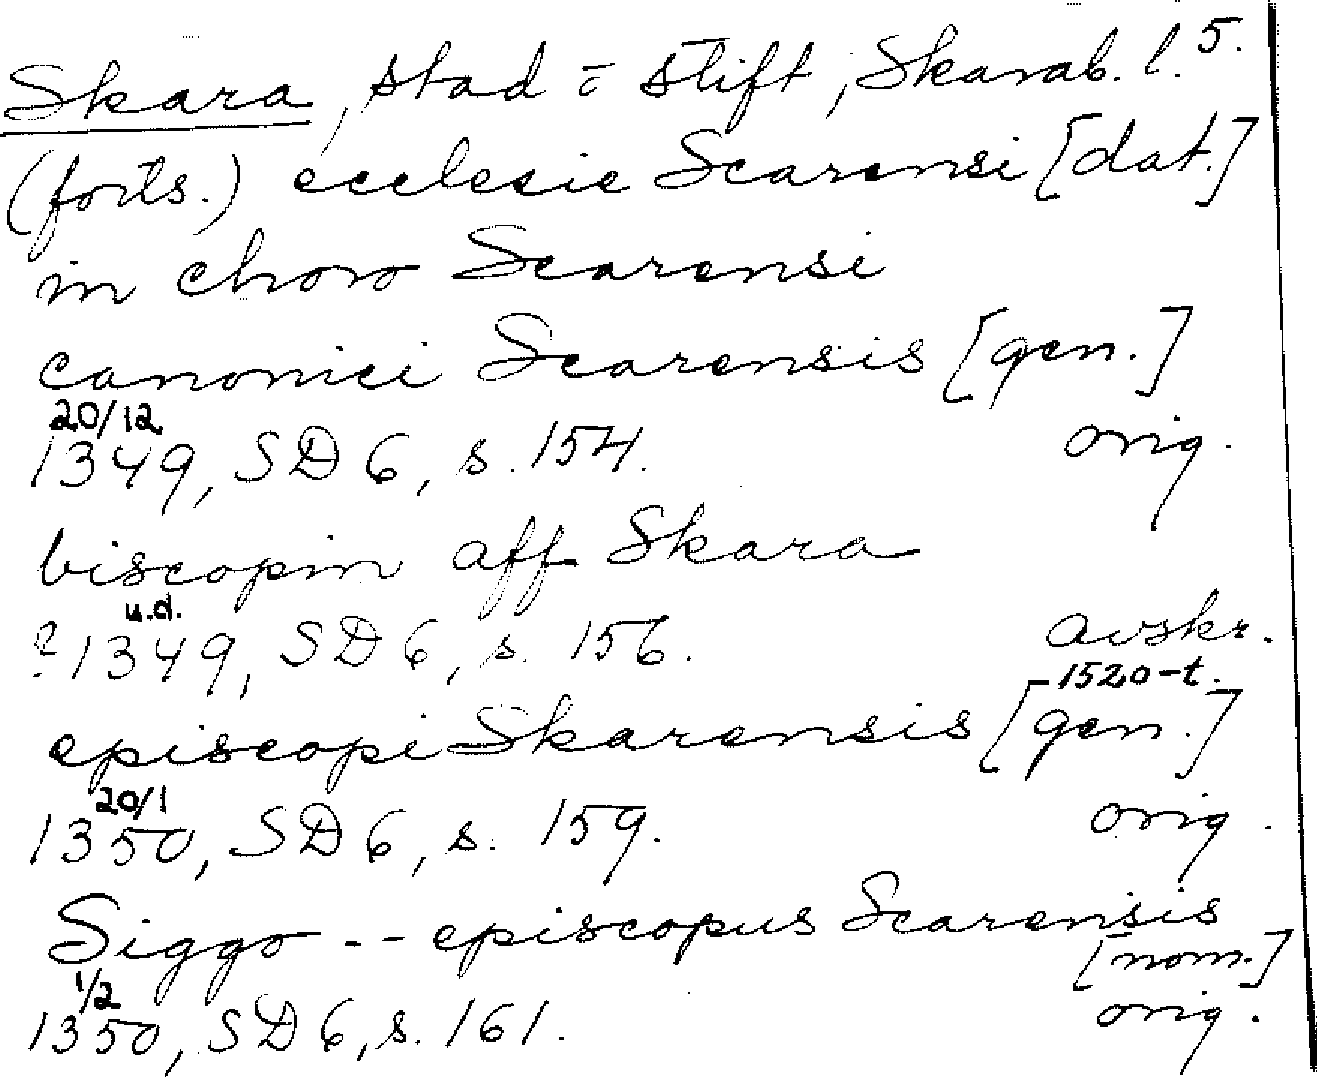 Skara, stad o stift, Skarab. l. 5.
(forts.) ecclesie Scarensi [dat.]
in choro Scarensi
canonici Scarensis [gen.]
20/12
1349, SD 6, s. 154. orig.
biscopin aff Skara
u.d.
?1349, SD 6, s. 156. avskr.
1520-t.
episcopi Skarensis [gen.]
20/1
1350, SD 6, s. 159. orig.
Siggo -- episcopus Scarensis
[nom.]
1/2
1350, SD 6, s. 161. orig.